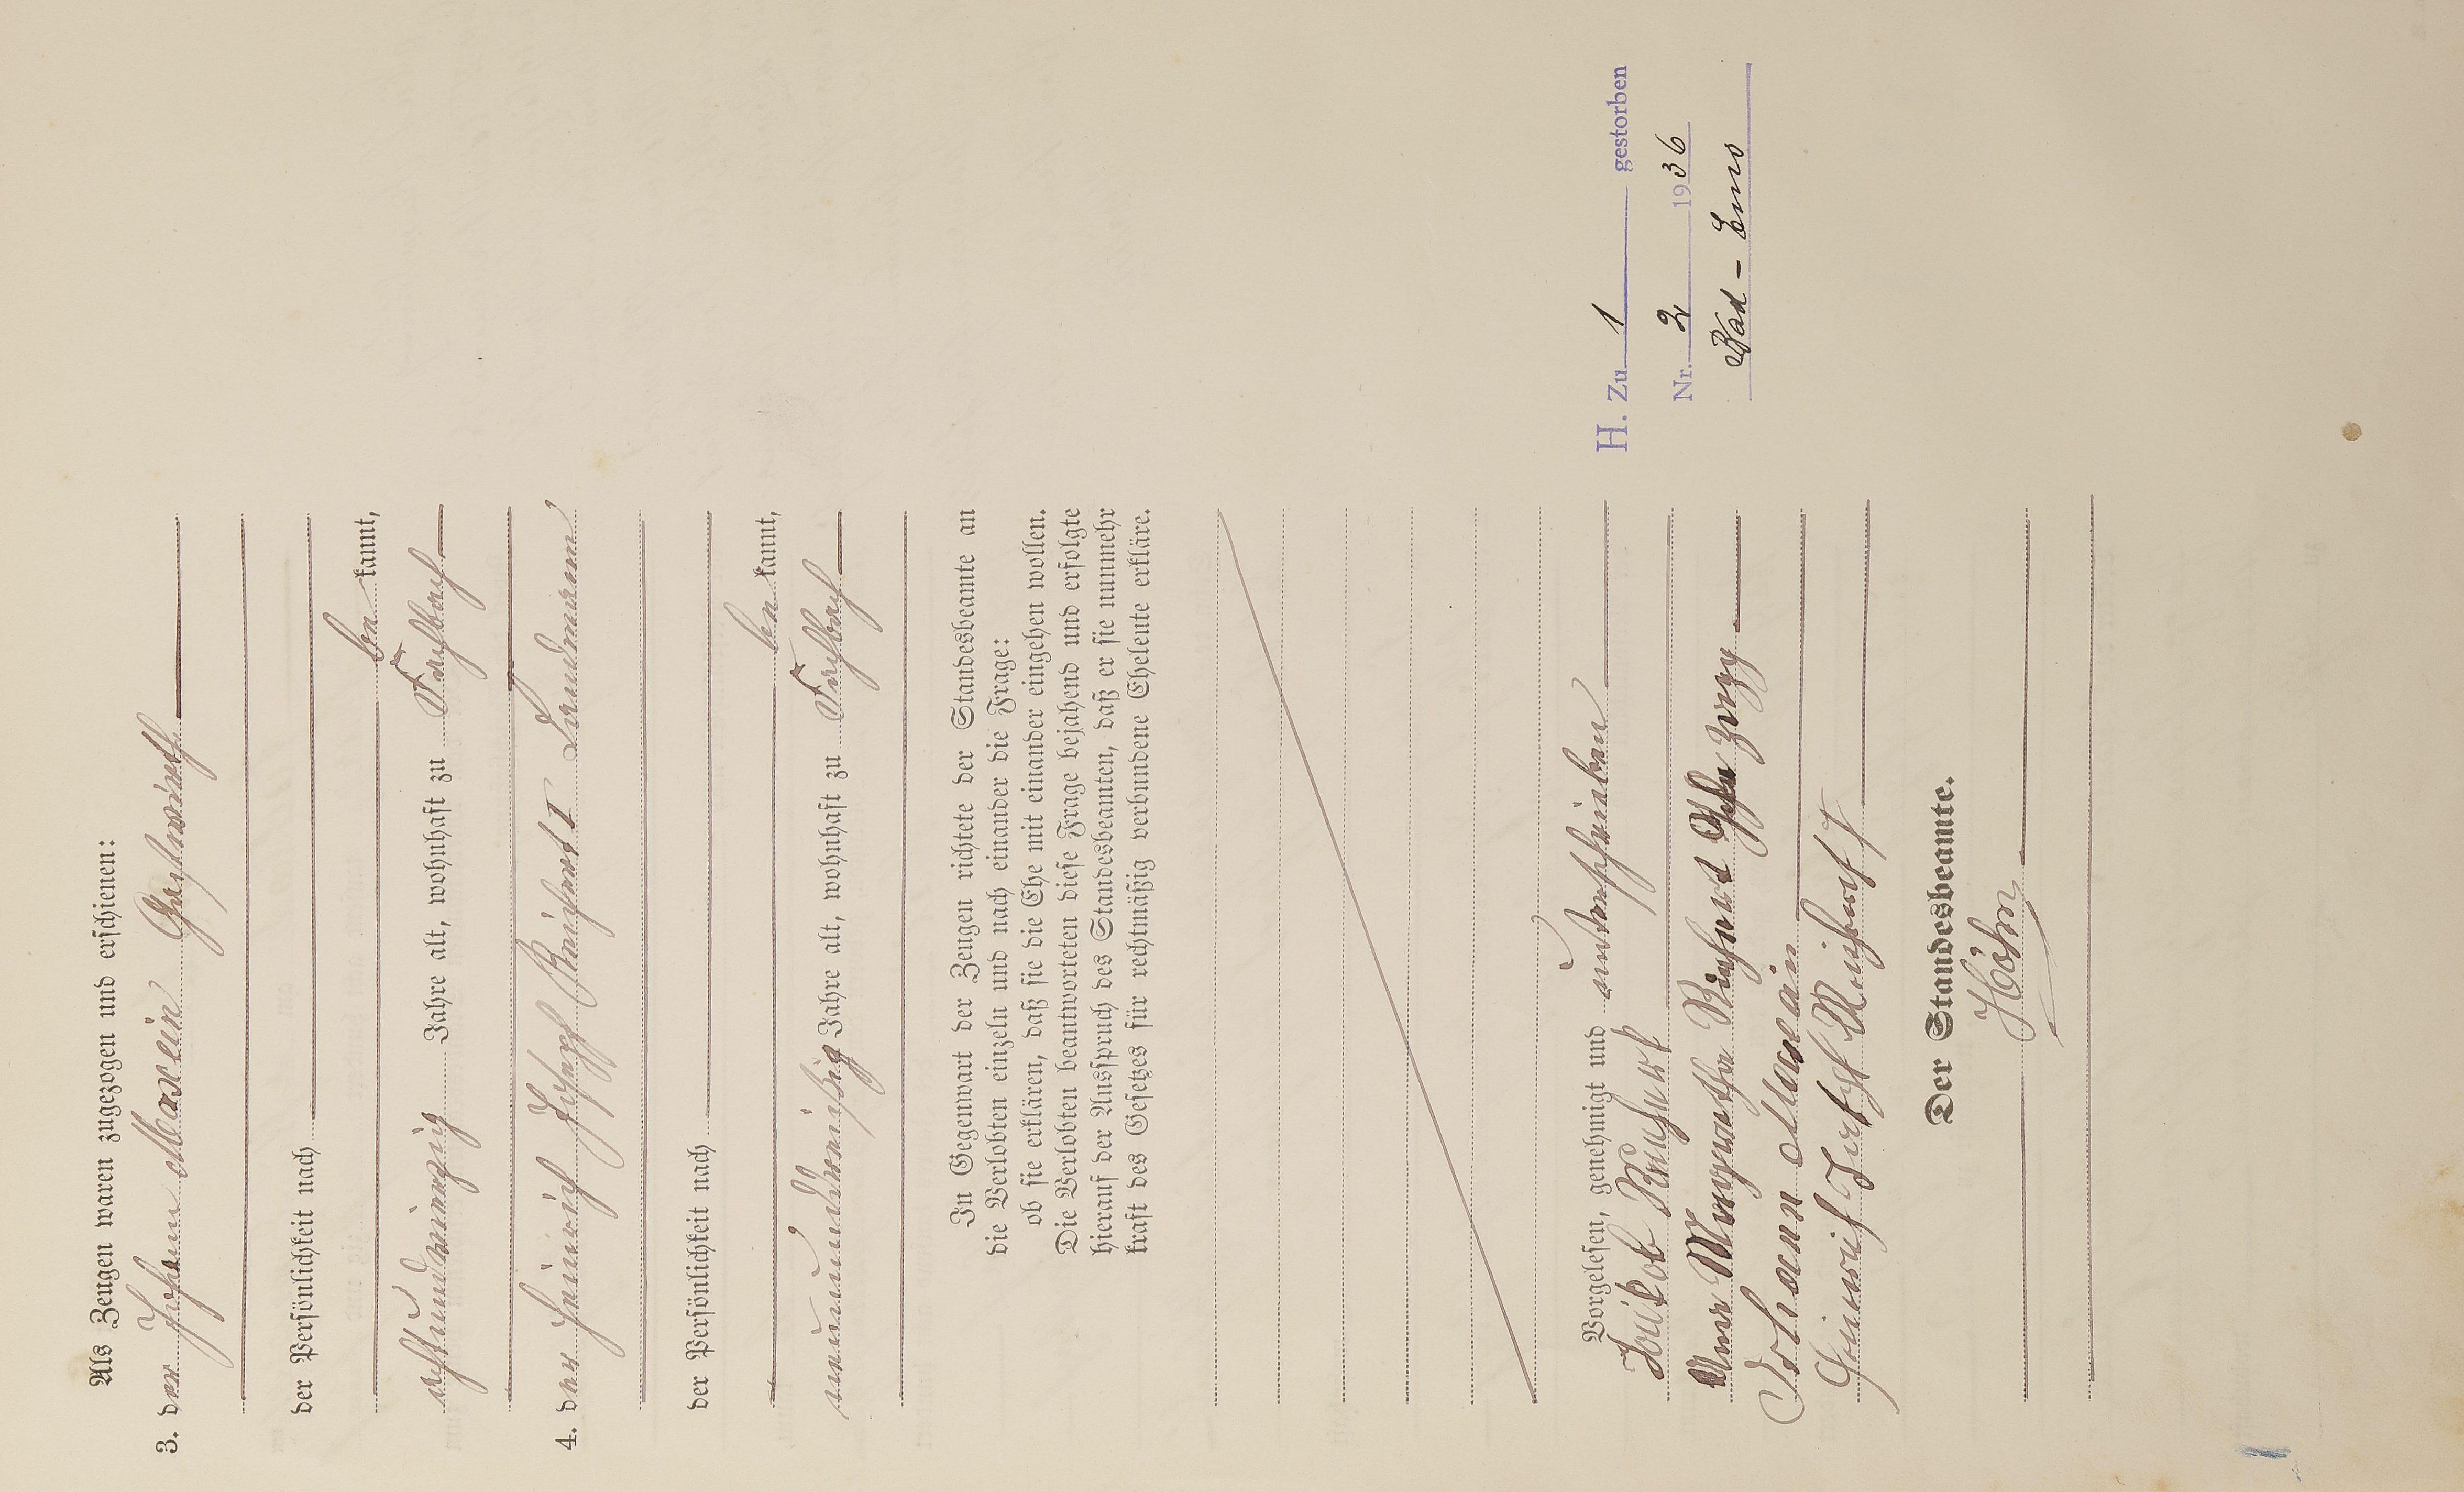 Als Zeugen waren zugezogen und erschienen:
3. der Johann Maxein Gastwirth
der Persönlichkeit nach
be kannt,
achtundvierzig Jahre alt, wohnhaft zu Fachbach
4. der Heinrich Joseph Reichert I Landmann
der Persönlichkeit nach
be kannt,
neununddreißig Jahre alt, wohnhaft zu Fachbach
In Gegenwart der Zeugen richtete der Standesbeamte an
die Verlobten einzeln und nach einander die Frage:
ob sie erklären, daß sie die Ehe mit einander eingehen wollen.
Die Verlobten beantworteten diese Frage bejahend und erfolgte
hierauf der Ausspruch des Standesbeamten, daß er sie nunmehr
kraft des Gesetzes für rechtmäßig verbundene Eheleute erkläre.
Vorgelesen, genehmigt und unterschrieben
Jakob
Anna Margaretha geb
Johann Maxein
Heinrich Josef Reichert I
Der Standesbeamte.
Höhn
H. Zu 1 gestorben
Nr. 2 1936
Bad-Ems